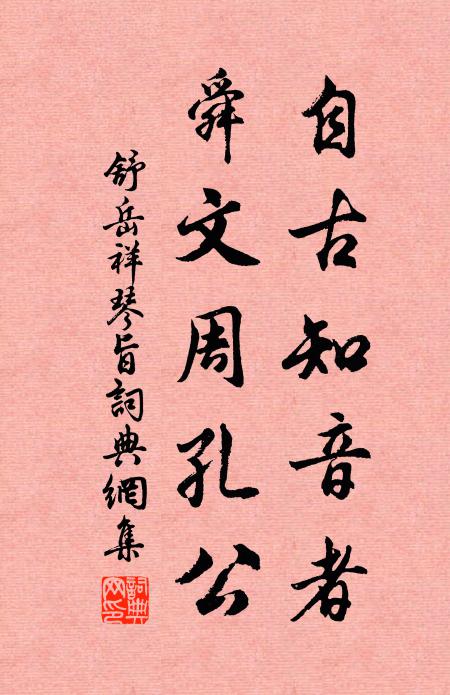 自古知音者
舜文周孔公
舒岳祥琴旨詞典網集
詞典网印